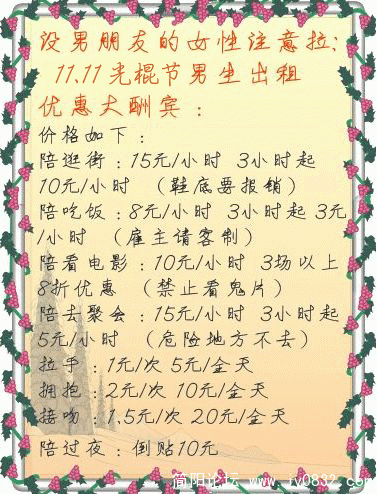 没男朋友的女性注意拉:
11.11光棍节男生出租
优惠大酬宾：
价格如下：
陪逛街：15元/小时 3小时起
10元/小时 （鞋底要报销）
陪吃饭：8元/小时 3小时起 3元
/小时 （雇主请客制）
陪看电影：10元/小时 3场以上
8折优惠 （禁止看鬼片）
陪去聚会：15元/小时 3小时起
5元/小时 （危险地方不去）
拉手：1元/次 5元/全天
拥抱：2元/次 10元/全天
接吻：1.5元/次 20元/全天
陪过夜：倒贴10元
简阳论坛 www.jy0832.com